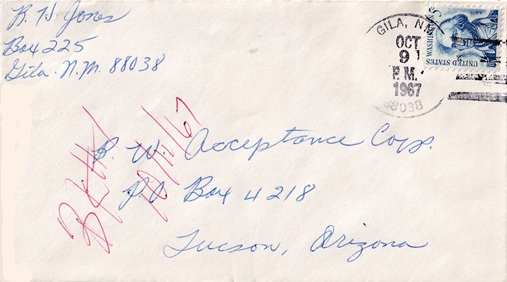 R. W. Jones
Box 225
Gila. N.M. 88038
GILA, N.M.
OCT
9
P.M.
1967
88038
5¢
UNITED STATES
B. W. Acceptance Corp.
PO Box 4218
Tucson, Arizona